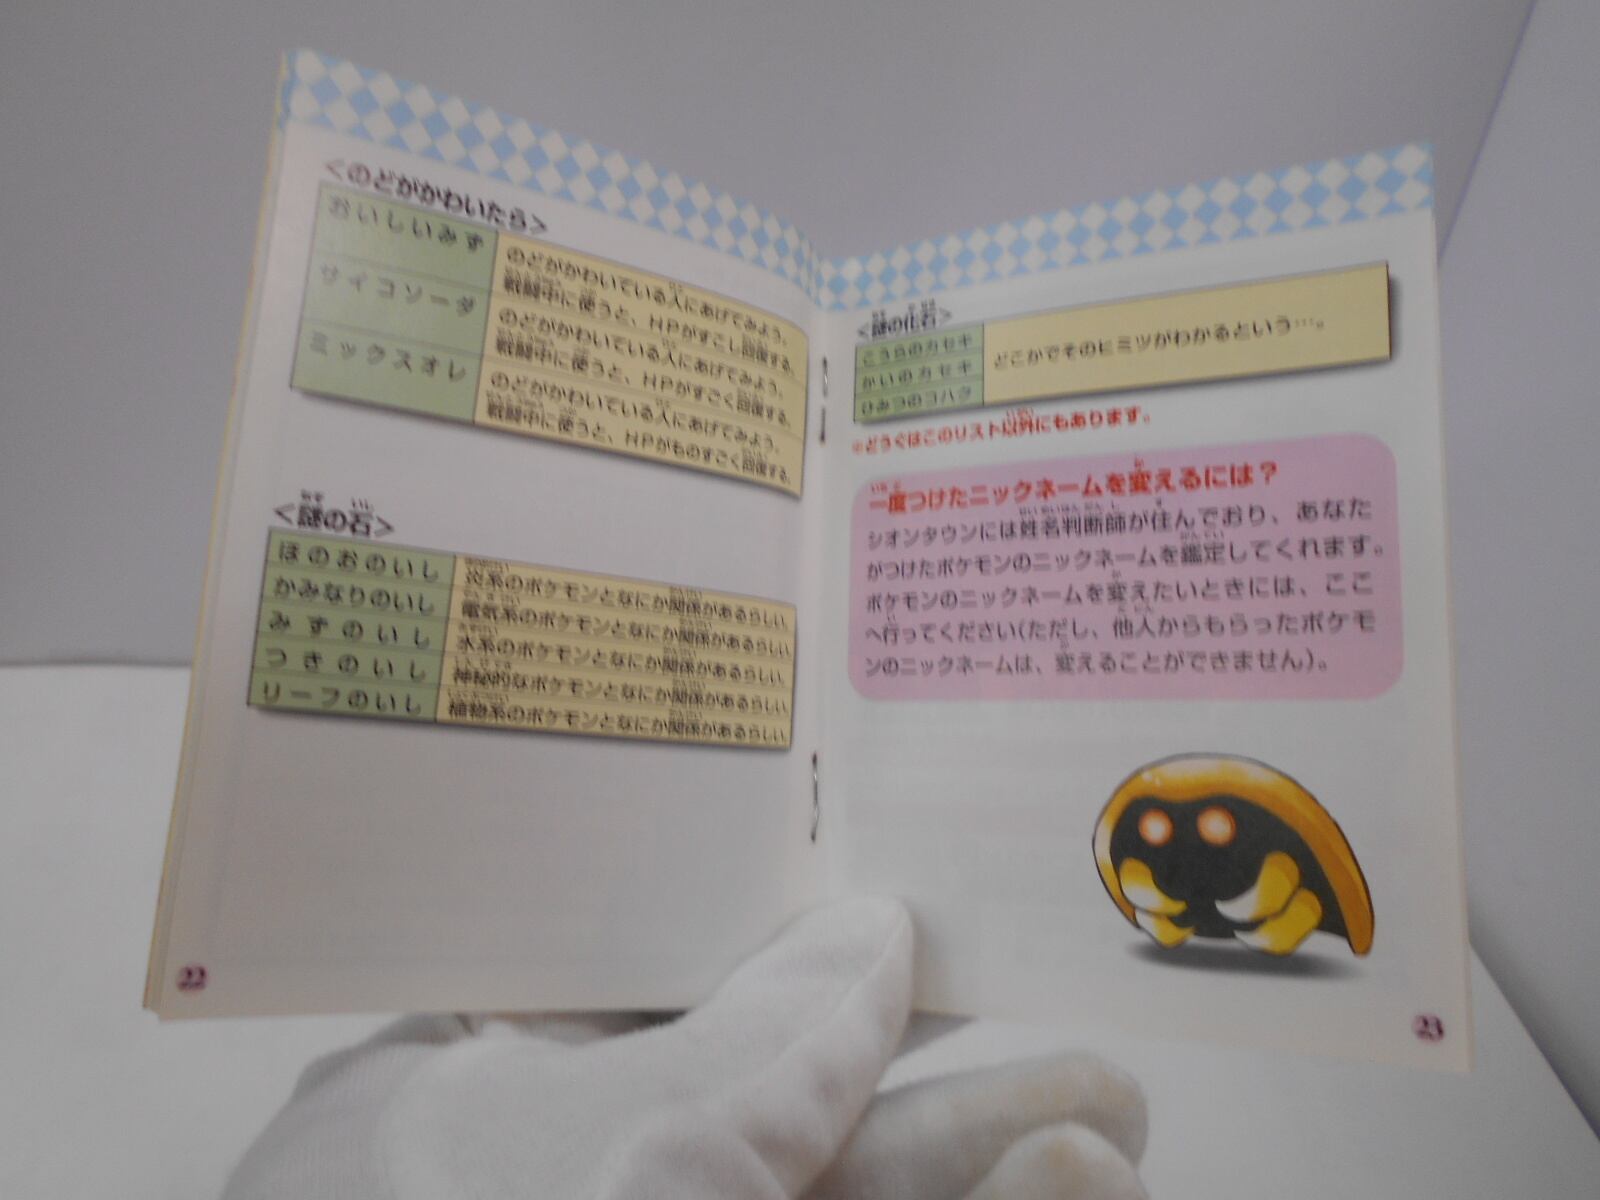 <のどがかわいたら>
おいしいみず
のどがかわいている人にあげてみよう。
戦闘中に使うと、HPがすこし回復する。
サイコソーダ
のどがかわいている人にあげてみよう。
戦闘中に使うと、HPがすごく回復する。
ミックスオレ
のどがかわいている人にあげてみよう。
戦闘中に使うと、HPがものすごく回復する。
<謎の石>
ほのおのいし 炎系のポケモンとなにか関係があるらしい。
かみなりのいし 電気系のポケモンとなにか関係があるらしい。
みずのいし 水系のポケモンとなにか関係があるらしい。
つきのいし 神秘的なポケモンとなにか関係があるらしい。
リーフのいし 植物系のポケモンとなにか関係があるらしい。
22
<謎の化石>
こうらのカセキ
かいのカセキ
ひみつのコハク
どこかでそのヒミツがわかるという…。
※どうぐはこのリスト以外にもあります。
一度つけたニックネームを変えるには?
シオンタウンには姓名判断師が住んでおり、あなた
がつけたポケモンのニックネームを鑑定してくれます。
ポケモンのニックネームを変えたいときには、ここ
へ行ってください(ただし、他人からもらったポケモ
ンのニックネームは、変えることができません)。
23